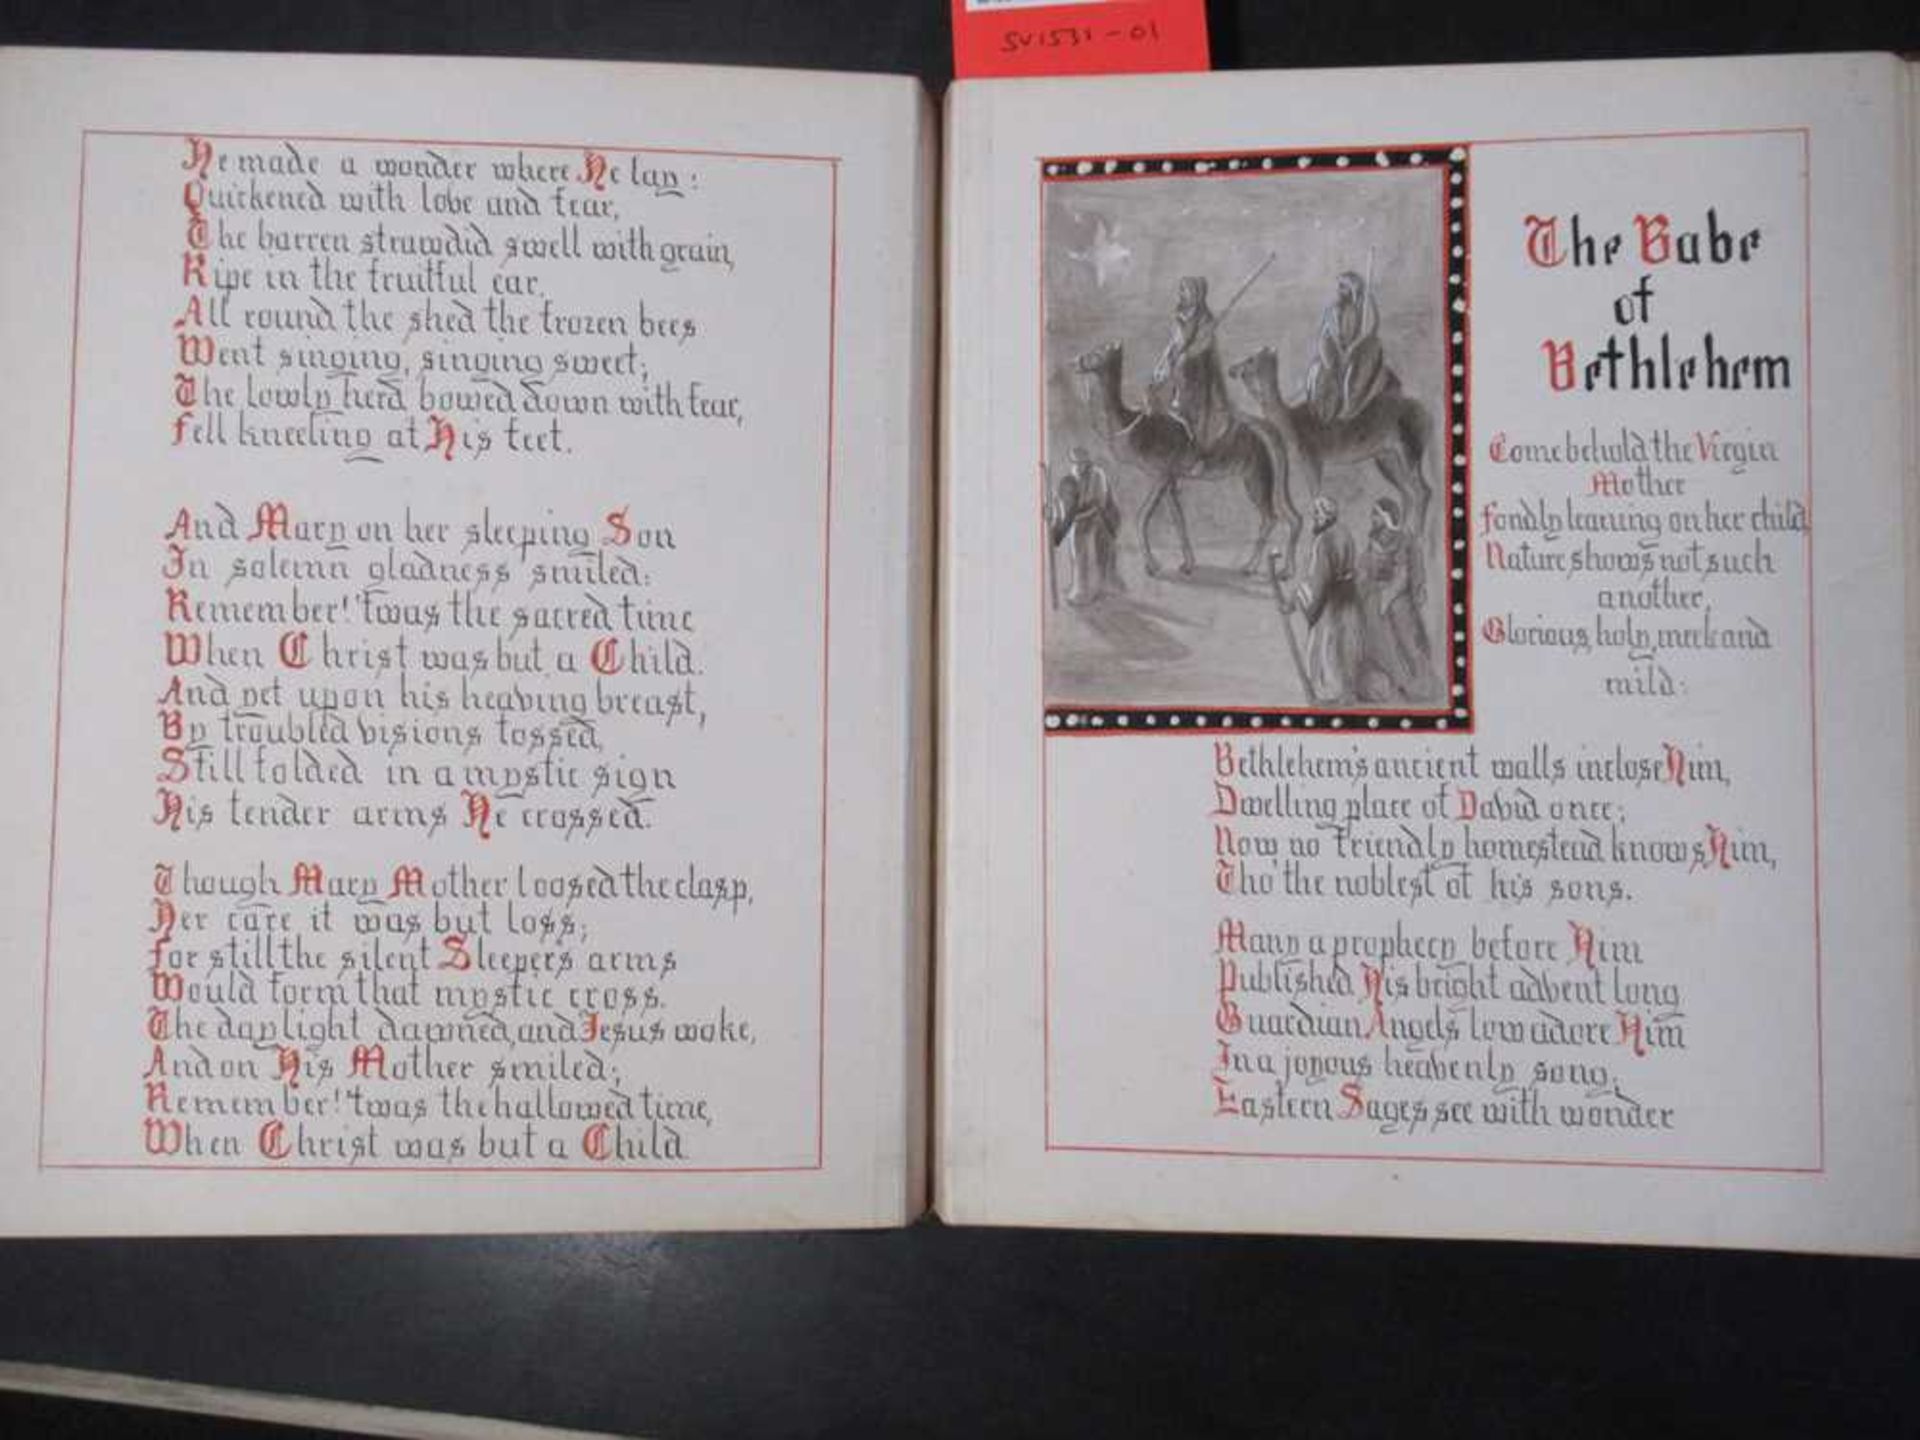 SV1531-01
He made a wonder where He lay:
Quickened with love and fear,
The barren straw did swell with grain,
Ripe in the fruitful ear.
All round the shed the frozen bees
Went singing, singing sweet;
The lowly herd bowed down with fear,
Fell kneeling at His feet.
And Mary on her sleeping Son
In solemn gladness smiled:
Remember! 'twas the sacred time
When Christ was but a Child.
And yet upon his heaving breast,
By troubled visions tossed,
Still folded in a mystic sign
His tender arms He crossed.
Though Mary Mother loosed the clasp,
Her care it was but loss;
For still the silent Sleeper's arms
Would form that mystic cross.
The daylight dawned, and Jesus woke,
And on His Mother smiled;
Remember! 'twas the hallowed time,
When Christ was but a Child
The Babe
of
Bethlehem
Come behold the Virgin
Mother
Fondly leaning on her child,
Nature shows not such
another,
Glorious, holy, meek and
mild:
Bethlehem's ancient walls inclose Him,
Dwelling place of David once;
Now no friendly homestead knows Him,
Tho' the noblest of his sons.
Many a prophecy before Him
Published His bright advent long
Guardian Angels low adore Him
In a joyous heavenly song,
Eastern Sages see with wonder